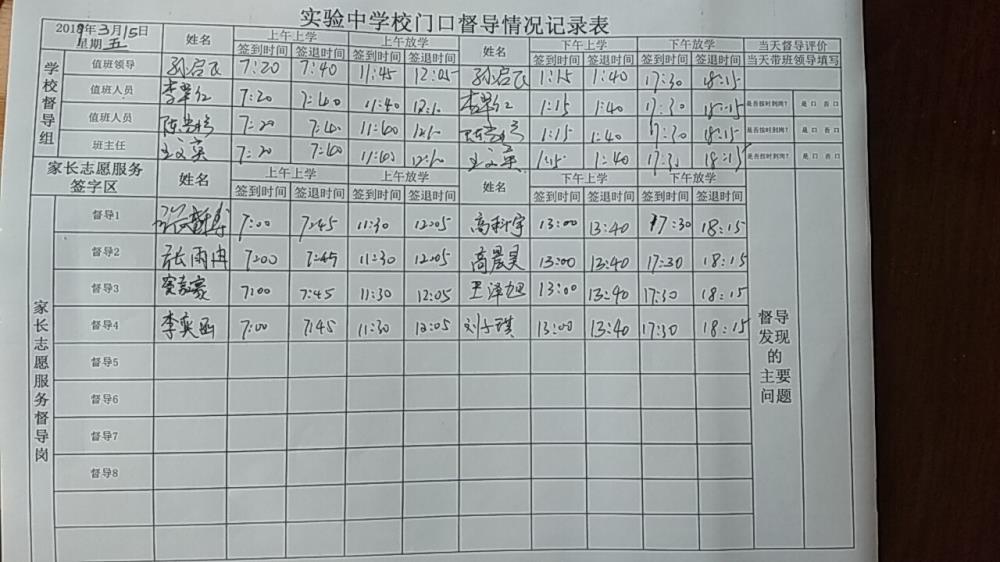 实验中学校门口督导情况记录表
2019年3月15日 星期五 姓名 上午上学 上午放学 姓名 下午上学 下午放学 当天督导评价
签到时间 签退时间 签到时间 签退时间 签到时间 签退时间 签到时间 签退时间 当天带班领导填写
学校督导组
值班领导 孙启飞 7:20 7:40 11:45 12:05 孙启飞 1:15 1:40 17:30 18:15
值班人员 7:20 7:40 11:40 12:10 1:15 1:40 17:30 18:15 是否按时到岗? 是口 否口
值班人员 7:20 7:40 11:40 12:10 1:15 1:40 17:30 18:15 是否按时到岗? 是口 否口
班主任 王文英 7:20 7:40 11:40 12:10 王文英 1:15 1:40 17:30 18:15 是否按时到岗? 是口 否口
家长志愿服务签字区 姓名 上午上学 上午放学 姓名 下午上学 下午放学
签到时间 签退时间 签到时间 签退时间 签到时间 签退时间 签到时间 签退时间
家长志愿服务督导岗
督导1 7:00 7:45 11:30 12:05 高科宇 13:00 13:40 17:30 18:15
督导2 张雨冉 7:00 7:45 11:30 12:05 高晨昊 13:00 13:40 17:30 18:15
督导3 7:00 7:45 11:30 12:05 王泽旭 13:00 13:40 17:30 18:15
督导4 李奕函 7:00 7:45 11:30 12:05 刘子琪 13:00 13:40 17:30 18:15
督导5
督导6
督导7
督导8
督导发现的主要问题